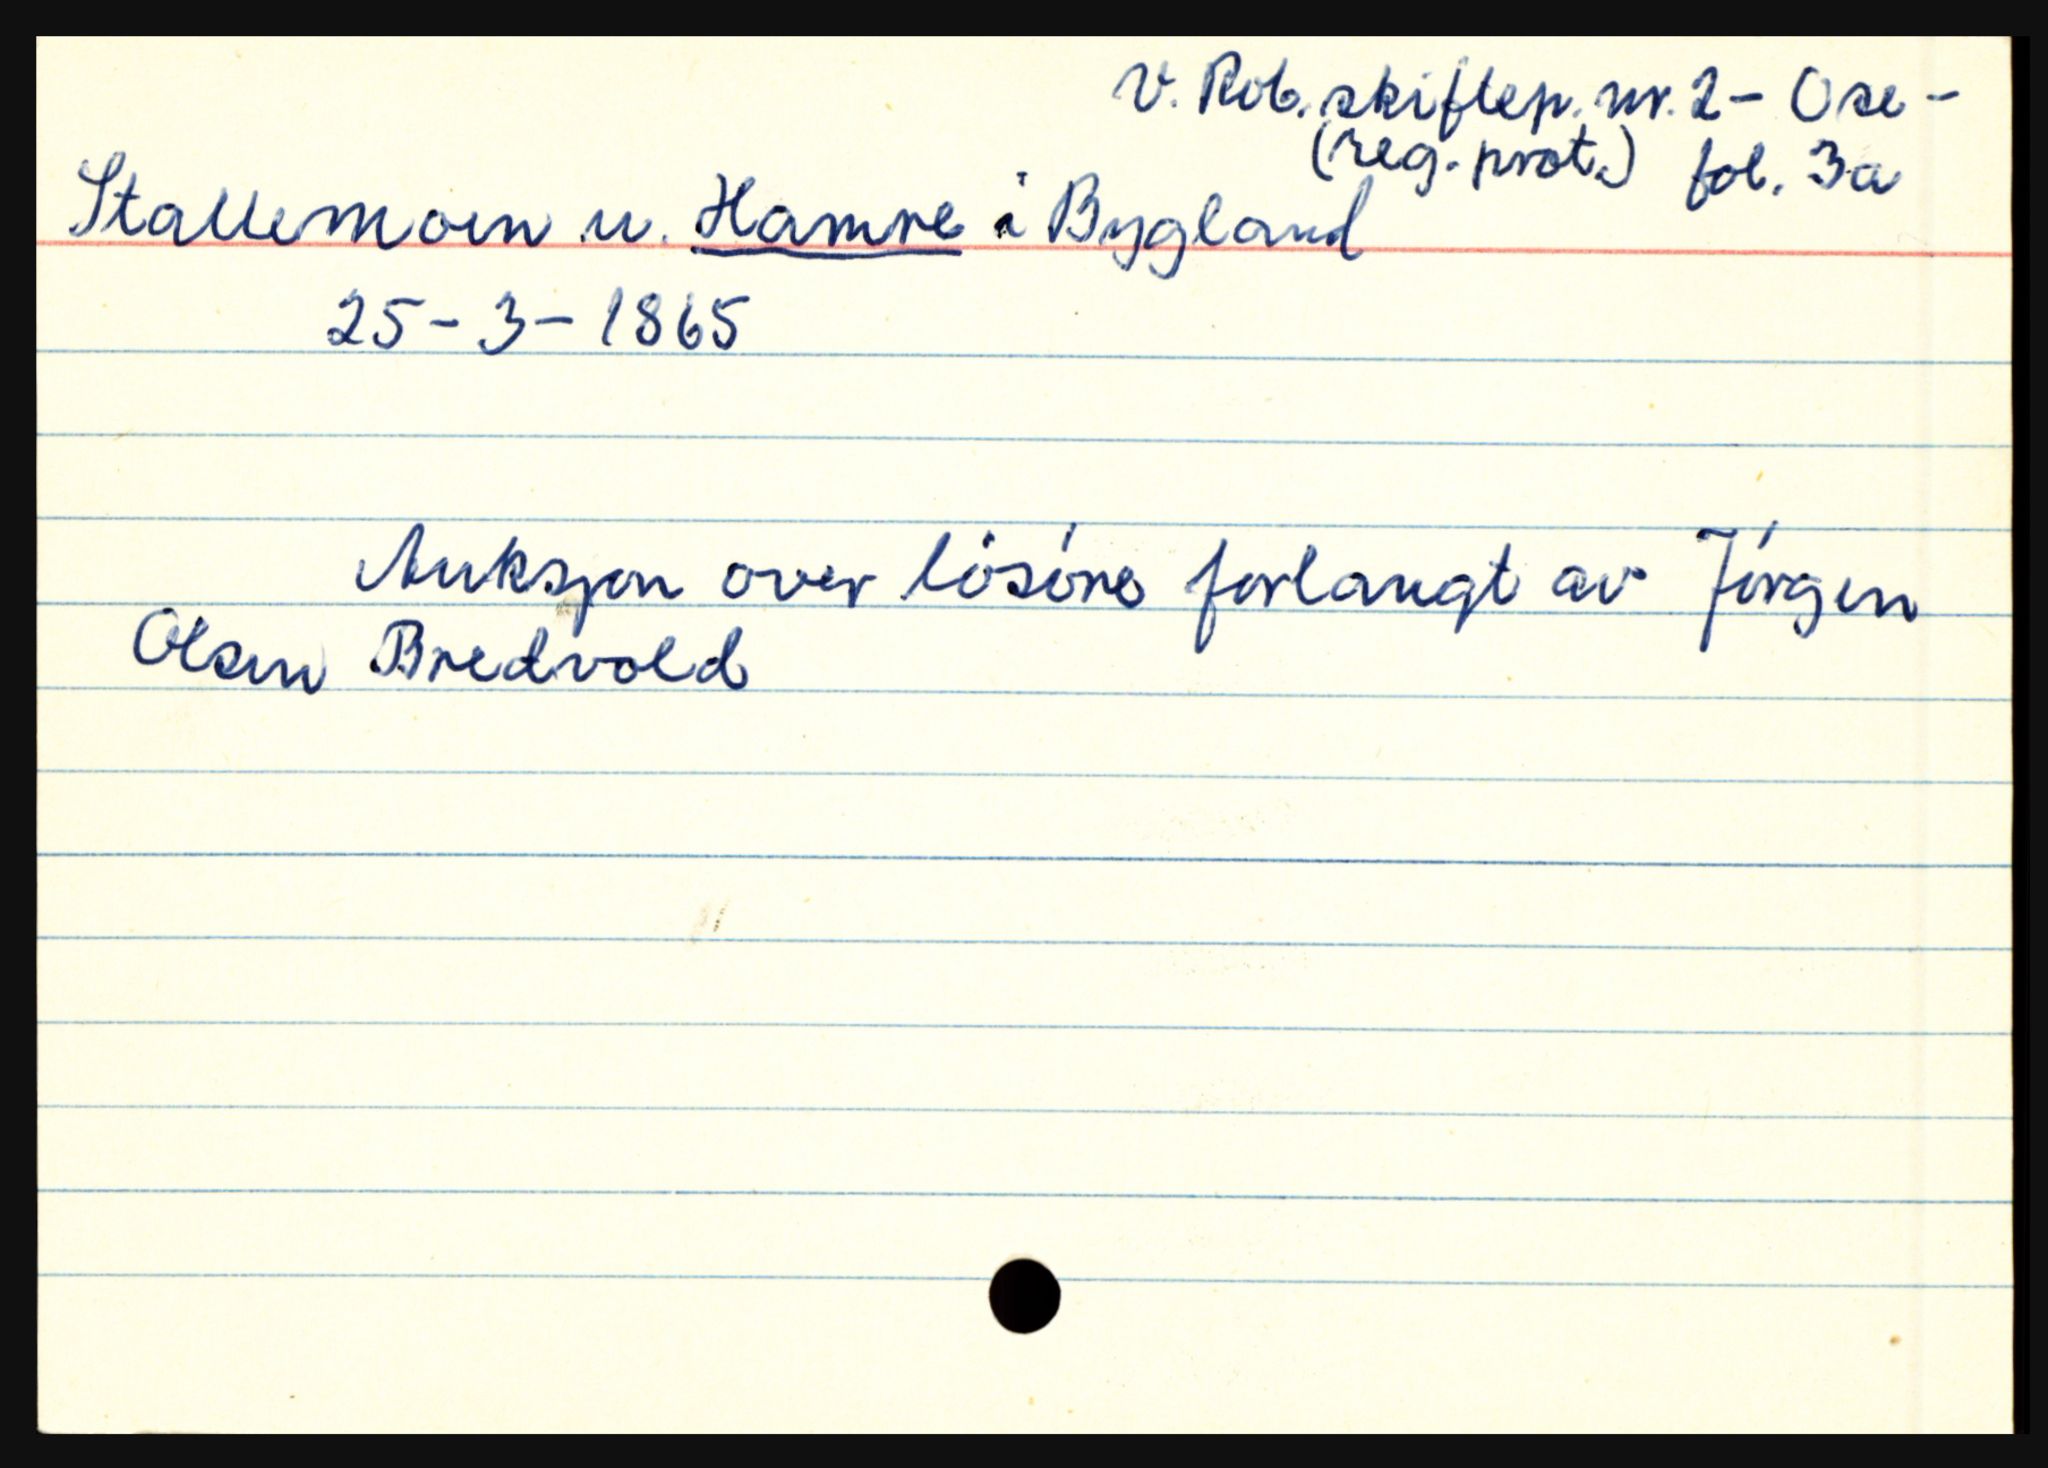 V. Rob. skiftep. nr. 2 - Ose -
(reg. prot.) fol. 3a
Stallemoen u. Hamre i Bygland
25 - 3 - 1865
Auksjon over lösöre forlangt av Jörgen
Olsen Bredvold